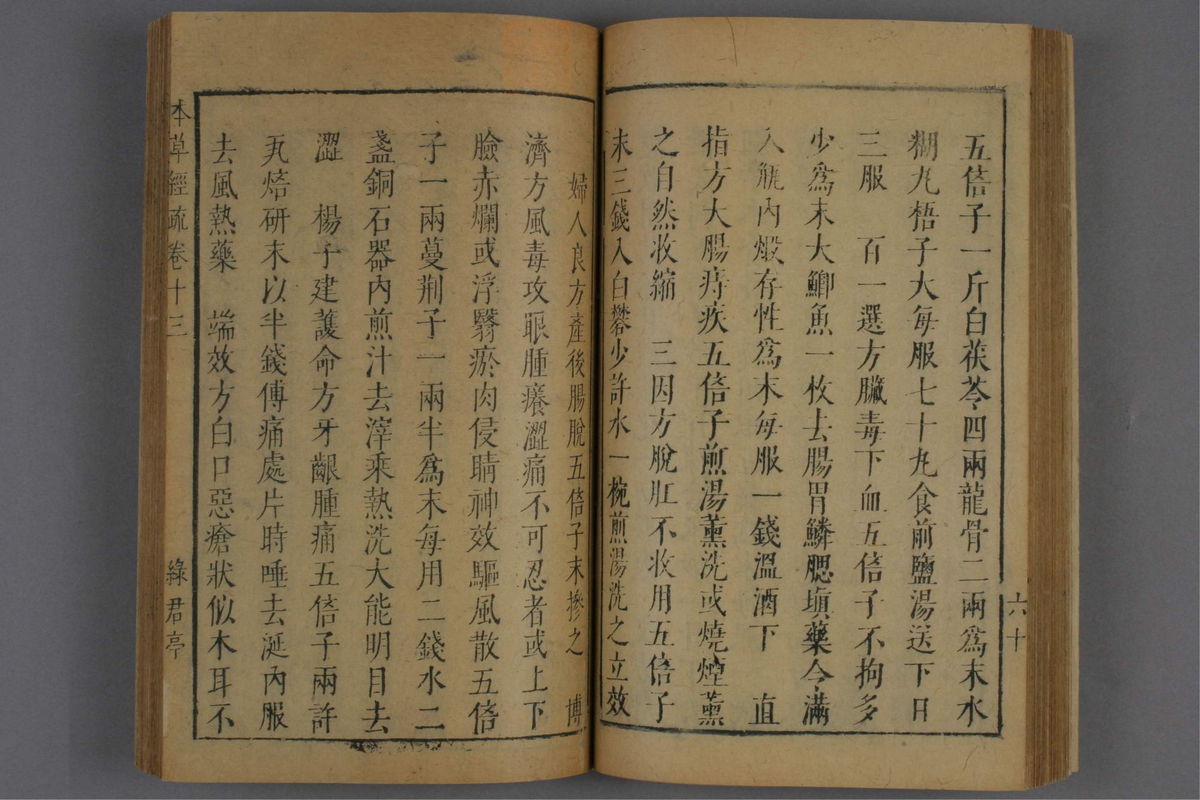 五倍子一斤白茯苓四兩龍骨二兩爲末水
糊丸梧子大每服七十丸食前鹽湯送下日
三服　百一選方臟毒下血五倍子不拘多
少爲末大鯽魚一枚去腸胃鱗腮塡藥令滿
入瓶內煅存性爲末每服一錢溫酒下　直
指方大腸痔疾五倍子煎湯薰洗或燒煙薰
之自然收縮　三因方脫肛不收用五倍子
末三錢入白礬少許水一椀煎湯洗之立效
六十
婦人良方產後腸脫五倍子末摻之　博
濟方風毒攻眼腫癢澀痛不可忍者或上下
臉赤爛或浮翳瘀肉侵睛神效驅風散五倍
子一兩蔓荆子一兩半爲末每用二錢水二
盞銅石器內煎汁去滓乘熱洗大能明目去
澀　楊子建護命方牙齦腫痛五倍子兩許
瓦焙研末以半錢傅痛處片時唾去涎內服
去風熱藥　端效方白口惡瘡狀似木耳不
本草經疏卷十三
綠君亭